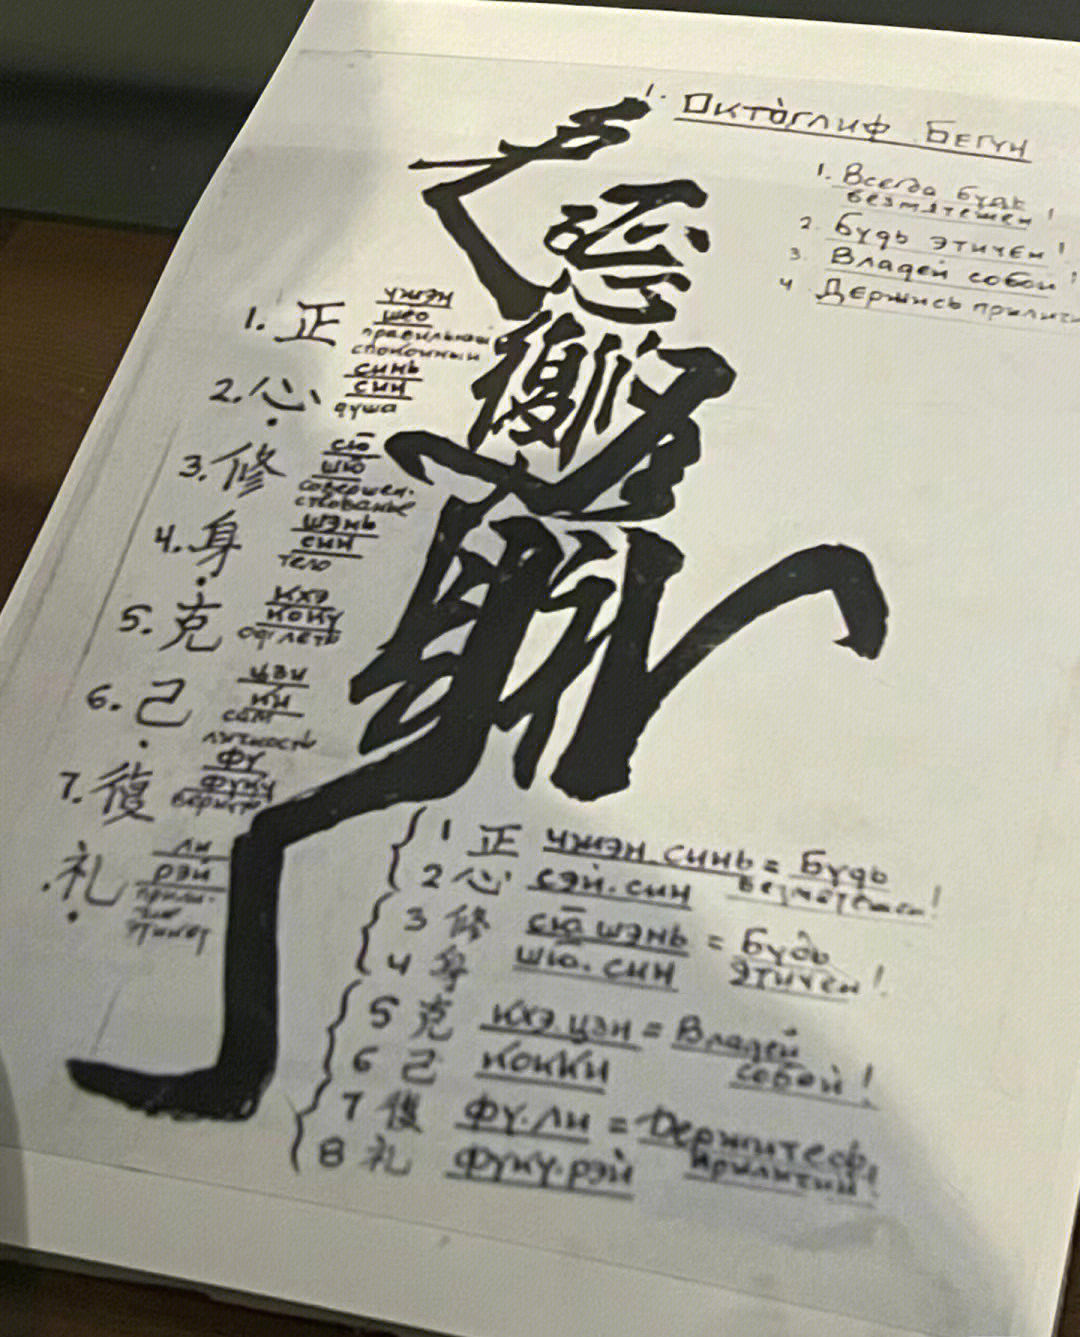 1. Октоглиф Бегун
1. Всегда будь
безмятежен!
2. Будь этичен!
3. Владей собой!
4 Держись
1. 正 чжэн
сёо
правильный
спокойный
2. 心 синь
син
душа
3. 修 сю
шю
совершен.
ствованье
4. 身 шэнь
син
тело
5. 克 кхэ
коку
6. 己 цзи
ки
сам
личность
7. 復 фу
фуку
礼 ли
рэй
прили-
чие
этикет
1 正 чжэн.синь = Будь
2 心 сэй.син безмятежен!
3 修 сю шэнь = Будь
4 身 шю.син этичен!
5 克 кхэ.цзи = Владей
6 己 кокки собой!
7 復 фу.ли =
8 礼 фуку.рэй приличий!